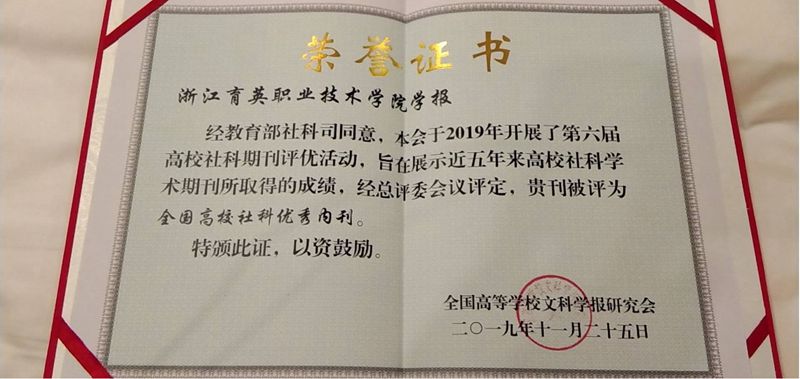 荣誉证书
浙江育英职业技术学院学报
经教育部社科司同意，本会于2019年开展了第六届
高校社科期刊评优活动，旨在展示近五年来高校社科学
术期刊所取得的成绩，经总评委会议评定，贵刊被评为
全国高校社科优秀内刊。
特颁此证，以资鼓励。
全国高等学校文科学报研究会
二〇一九年十一月二十五日